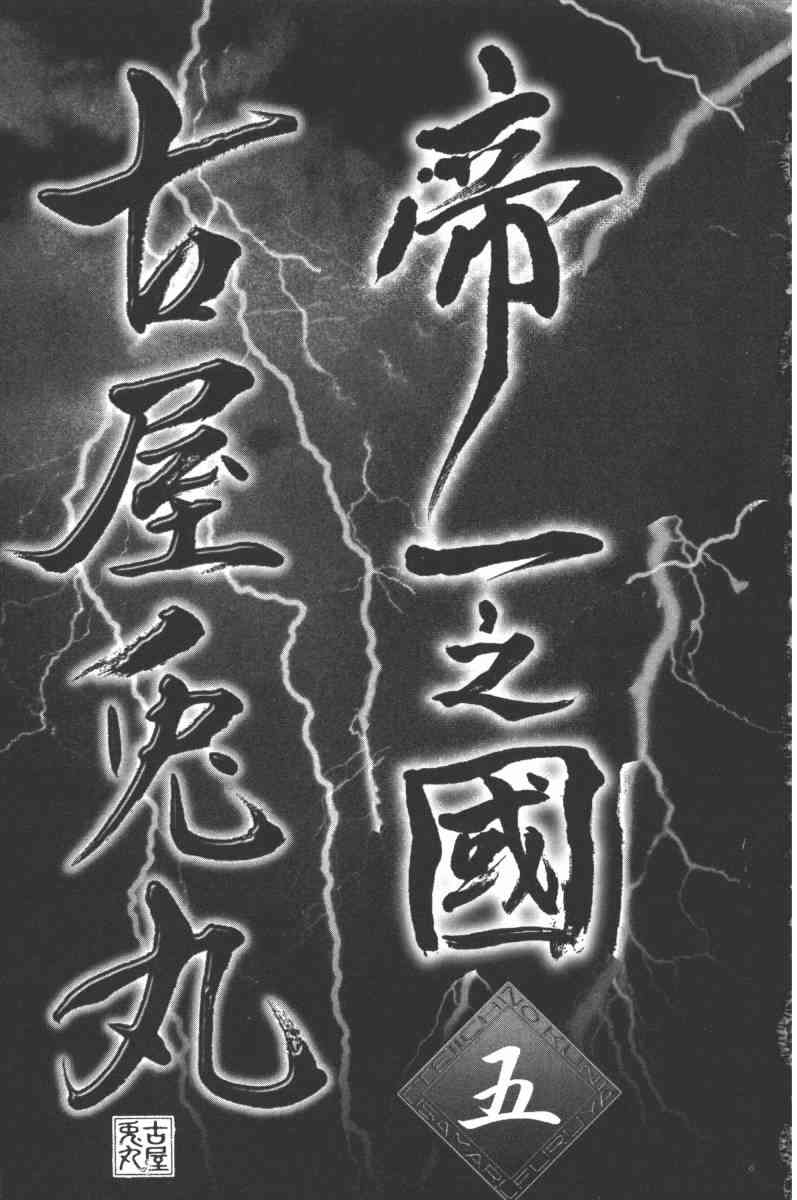 帝一之國
五
TEIICHI NO KUNI
USAMARU FURUYA
古屋兎丸
古屋
兎丸